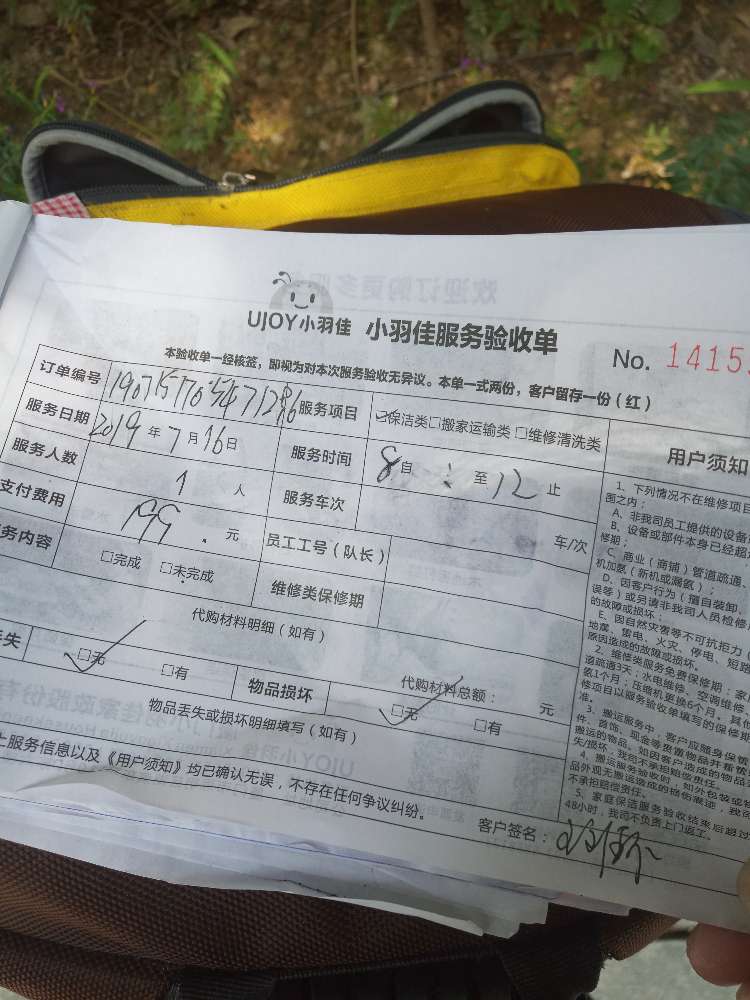 UJOY小羽佳 小羽佳服务验收单
No. 1415
本验收单一经核签，即视为对本次服务验收无异议。本单一式两份，客户留存一份（红）
订单编号 服务项目 保洁类□搬家运输类□维修清洗类
服务日期 2019年7月16日 服务时间 8自 至12止
服务人数 1人 服务车次 车/次
支付费用 199.元 员工工号（队长）
务内容 □完成 □未完成 维修类保修期
代购材料明细（如有）
代购材料总额： 元
丢失 □无 □有 物品损坏 □无 □有
物品丢失或损坏明细填写（如有）
上服务信息以及《用户须知》均已确认无误，不存在任何争议纠纷。
客户签名：
用户须知
1、下列情况不在维修项目
围之内：
A、非我司员工提供的设备
B、设备或部件本身已经超
修期；
C、商业（商铺）管道疏通、
机加氨（新机或漏氨）；
D、因客户行为（擅自装卸、
误等）或另请非我司人员检修
的故障或损坏；
E、因自然灾害等不可抗拒力（
地震、雷电、火灾、停电、短路
原因造成的故障或损坏。
2、维修类服务免费保修期：家
道疏通3天；水电维修、空调维修、
氨1个月；压缩机更换6个月。其他
修项目以服务验收单填写的保修期
准。
3、搬运服务中，客户应随身保管
件、首饰、现金等贵重物品并看管
搬运的物品。如因客户造成的物品丢
失/损坏，我司不承担赔偿责任。
4、搬运服务验收时，如外包装或物
品外观无搬运造成的损伤痕迹，我司
不承担赔偿责任。
5、家庭保洁服务验收结束后超过
48小时，我司不负责上门返工。